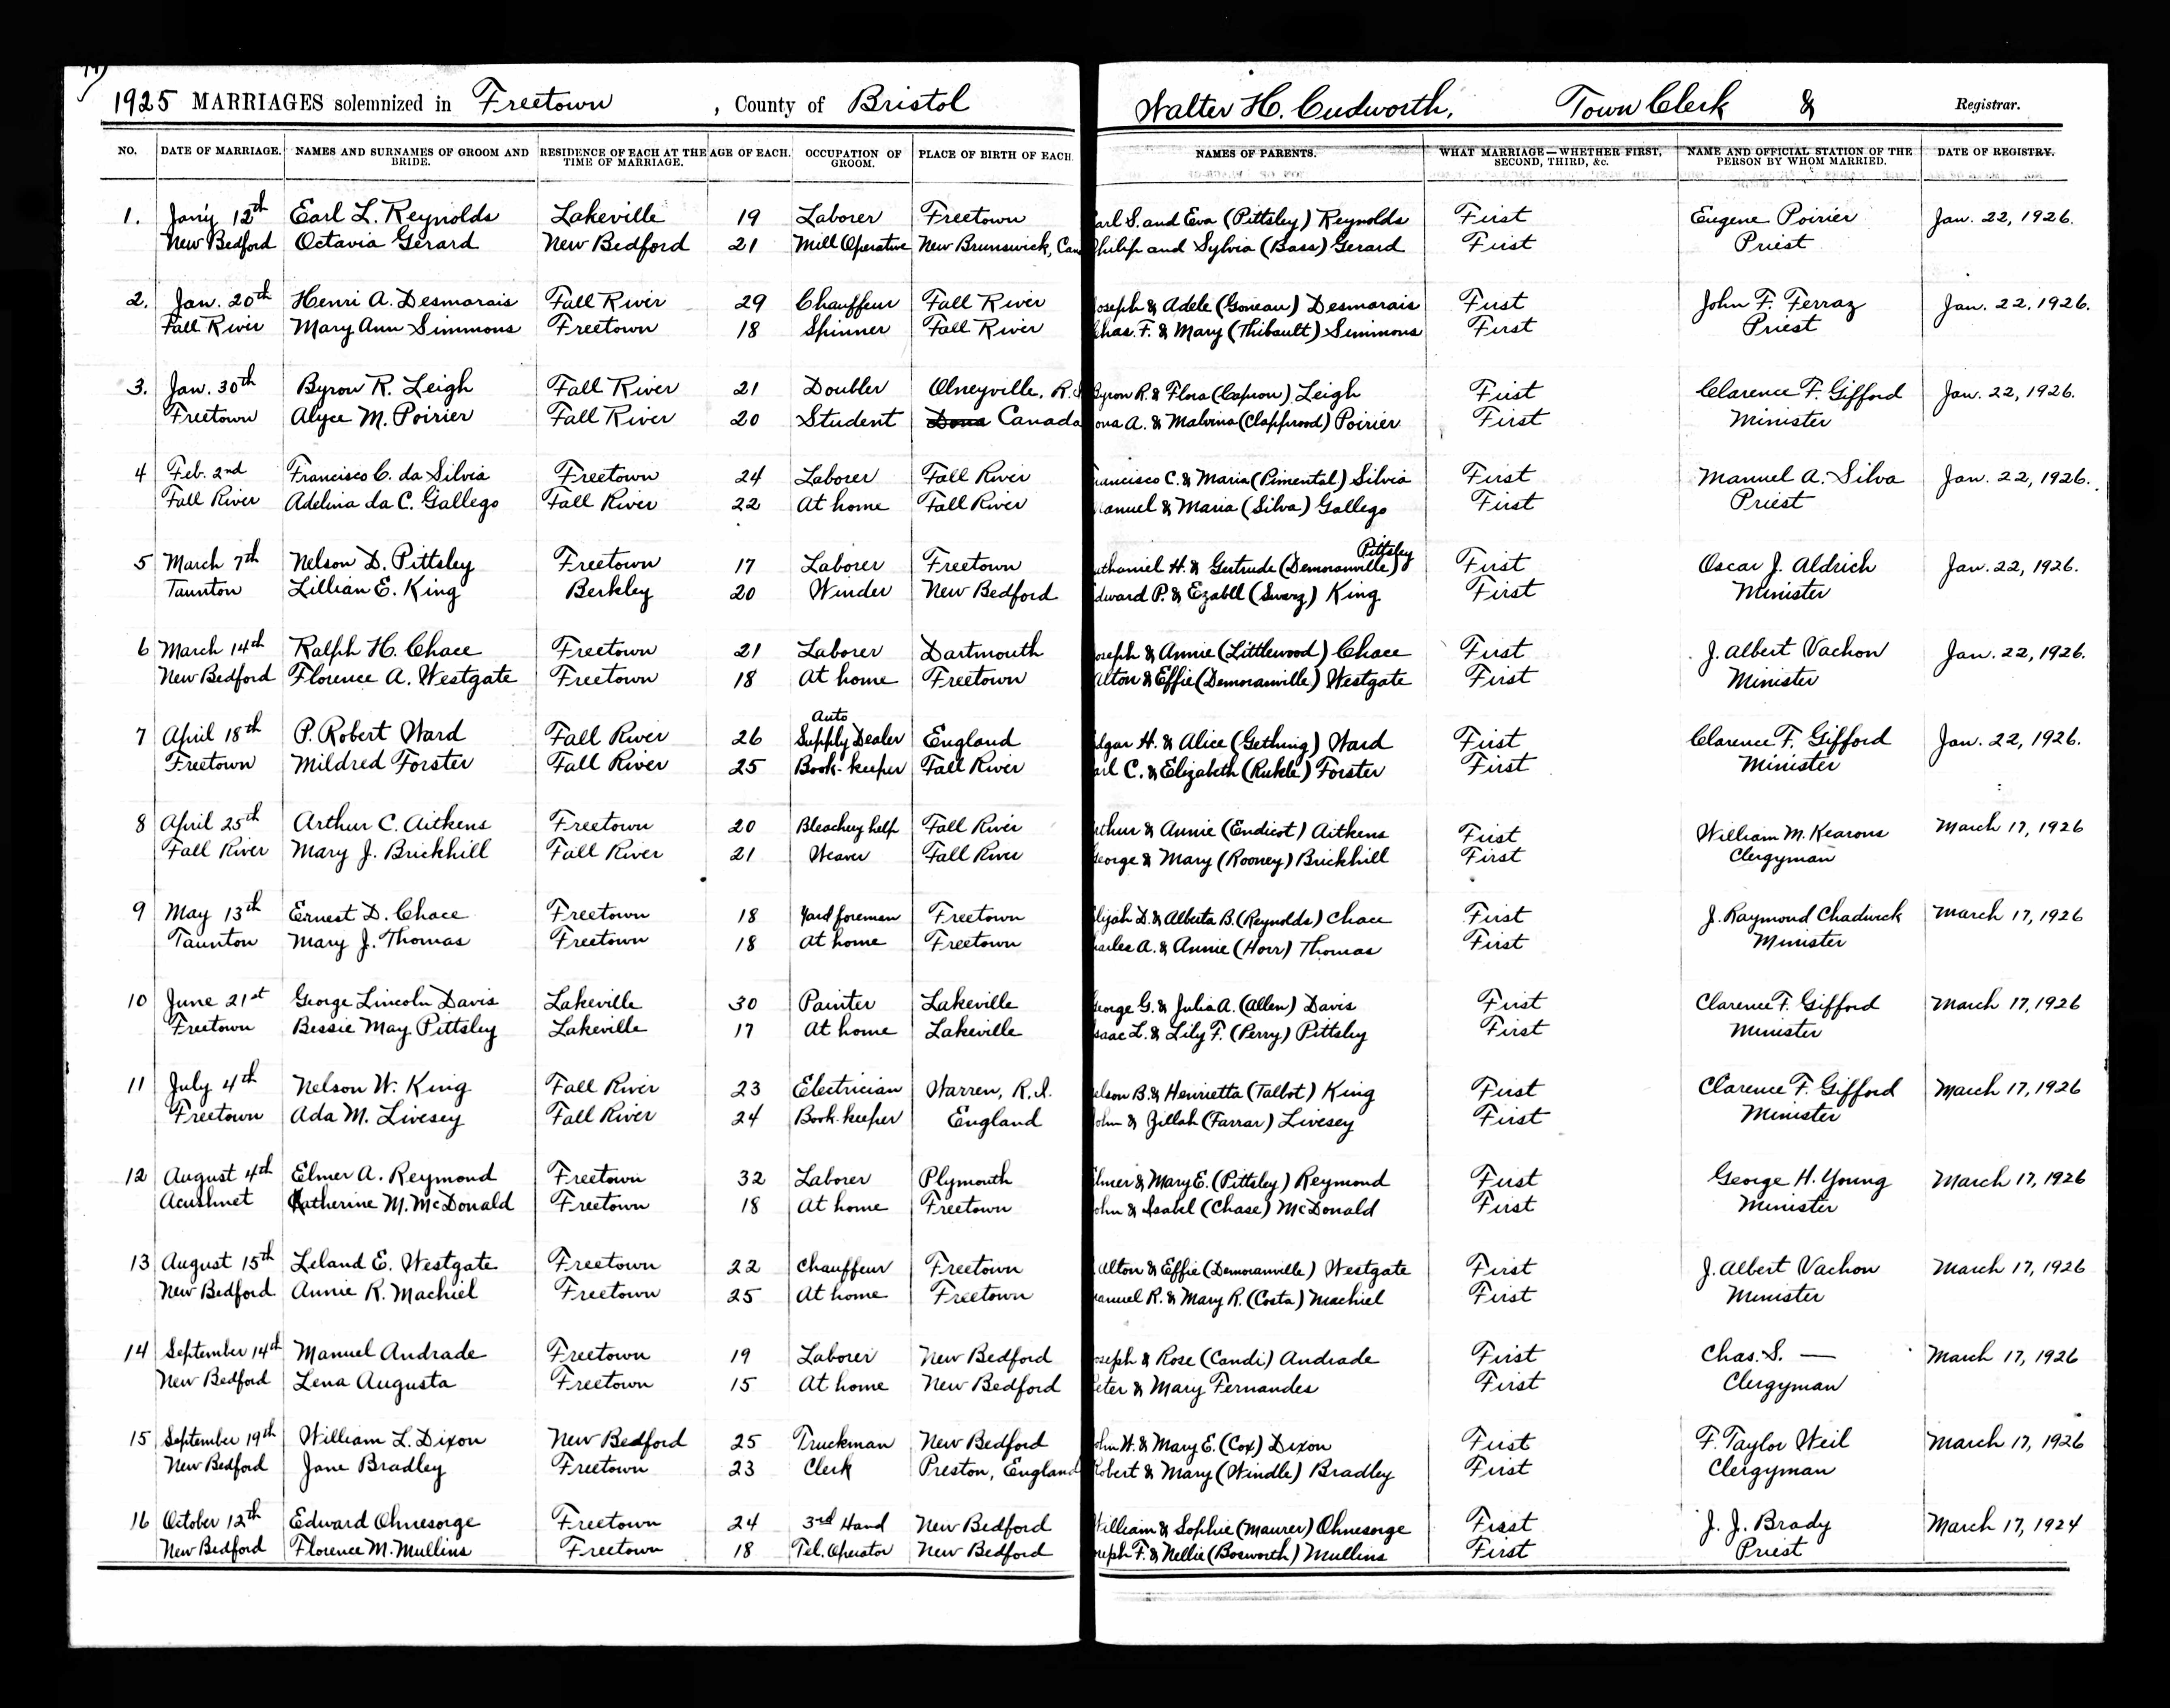 1925 MARRIAGES solemnized in Freetown, County of Bristol Walter H. Cudworth, Town Clerk & Registrar.
NO. DATE OF MARRIAGE. NAMES AND SURNAMES OF GROOM AND BRIDE. RESIDENCE OF EACH AT THE TIME OF MARRIAGE. AGE OF EACH. OCCUPATION OF GROOM. PLACE OF BIRTH OF EACH. NAMES OF PARENTS. WHAT MARRIAGE—WHETHER FIRST, SECOND, THIRD, &c. NAME AND OFFICIAL STATION OF THE PERSON BY WHOM MARRIED. DATE OF REGISTRY.
1. Jan'y 12th Earl L. Reynolds Lakeville 19 Laborer Freetown arl S. and Eva (Pittsley) Reynolds First Eugene Poirier Jan. 22, 1926.
New Bedford Octavia Gerard New Bedford 21 Mill Operative New Brunswick, Can hilip and Sylvia (Bass) Gerard First Priest
2. Jan. 20th Henri A. Desmarais Fall River 29 Chauffeur Fall River oseph & Adele (Goneau) Desmarais First John F. Ferraz Jan. 22, 1926.
Fall River Mary Ann Simmons Freetown 18 Spinner Fall River has. F. & Mary (Thibault) Simmons First Priest
3. Jan. 30th Byron R. Leigh Fall River 21 Doubler Olneyville, R.I Byron R. & Flora (Capron) Leigh First Clarence F. Gifford Jan. 22, 1926.
Freetown Alyce M. Poirier Fall River 20 Student Dona Canada ona A. & Malvina (Clapprood) Poirier First Minister
4 Feb. 2nd Francisco C. da Silvia Freetown 24 Laborer Fall River rancisco C. & Maria (Pimental) Silvia First Manuel A. Silva Jan. 22, 1926.
Fall River Adelina da C. Gallego Fall River 22 At home Fall River anuel & Maria (Silva) Gallego First Priest
5 March 7th Nelson D. Pittsley Freetown 17 Laborer Freetown athaniel H. & Gertrude (Demoranville) Pittsley First Oscar J. Aldrich Jan. 22, 1926.
Taunton Lillian E. King Berkley 20 Winder New Bedford dward P. & Ezabell King First Minister
6 March 14th Ralph H. Chace Freetown 21 Laborer Dartmouth oseph & Annie (Littlewood) Chace First J. Albert Vachon Jan. 22, 1926.
New Bedford Florence A. Westgate Freetown 18 At home Freetown Alton & Effie (Demoranville) Westgate First Minister
7 April 18th P. Robert Ward Fall River 26 Auto Supply Dealer England dgar H. & Alice (Gething) Ward First Clarence F. Gifford Jan. 22, 1926.
Freetown Mildred Forster Fall River 25 Book-keeper Fall River arl C. & Elizabeth (Rukle) Forster First Minister
8 April 25th Arthur C. Aitkens Freetown 20 Bleachery help Fall River rthur & Annie (Endicot) Aitkens First William M. Kearons March 17, 1926
Fall River Mary J. Brickhill Fall River 21 Weaver Fall River George & Mary (Rooney) Brickhill First Clergyman
9 May 13th Ernest D. Chace Freetown 18 Yard foreman Freetown lijah D. & Alberta B. (Reynolds) Chace First J. Raymond Chadwick March 17, 1926
Taunton Mary J. Thomas Freetown 18 At home Freetown harles A. & Annie (Horr) Thomas First Minister
10 June 21st George Lincoln Davis Lakeville 30 Painter Lakeville George G. & Julia A. (Allen) Davis First Clarence F. Gifford March 17, 1926
Freetown Bessie May Pittsley Lakeville 17 At home Lakeville saac L. & Lily F. (Perry) Pittsley First Minister
11 July 4th Nelson W. King Fall River 23 Electrician Warren, R.I. elson B. & Henrietta (Talbot) King First Clarence F. Gifford March 17, 1926
Freetown Ada M. Livesey Fall River 24 Book-keeper England ohn & Zillah (Farrar) Livesey First Minister
12 August 4th Elmer A. Reymond Freetown 32 Laborer Plymouth lmer & Mary E. (Pittsley) Reymond First George H. Young March 17, 1926
Acushnet Katherine M. McDonald Freetown 18 At home Freetown ohn & Isabel (Chase) McDonald First Minister
13 August 15th Leland E. Westgate Freetown 22 Chauffeur Freetown Alton & Effie (Demoranville) Westgate First J. Albert Vachon March 17, 1926
New Bedford Annie R. Machiel Freetown 25 At home Freetown anuel R. & Mary R. (Costa) Machiel First Minister
14 September 14th Manuel Andrade Freetown 19 Laborer New Bedford oseph & Rose (Candi) Andrade First Chas. S. — March 17, 1926
New Bedford Lena Augusta Freetown 15 At home New Bedford eter & Mary Fernandes First Clergyman
15 September 19th William L. Dixon New Bedford 25 Truckman New Bedford ohn W. & Mary E. (Cox) Dixon First F. Taylor Weil March 17, 1926
New Bedford Jane Bradley Freetown 23 Clerk Preston, England Robert & Mary (Windle) Bradley First Clergyman
16 October 12th Edward Ohnesorge Freetown 24 3rd Hand New Bedford William & Sophie (Maurer) Ohnesorge First J. J. Brady March 17, 1924
New Bedford Florence M. Mullins Freetown 18 Tel. Operator New Bedford oseph F. & Nellie (Bosworth) Mullins First Priest